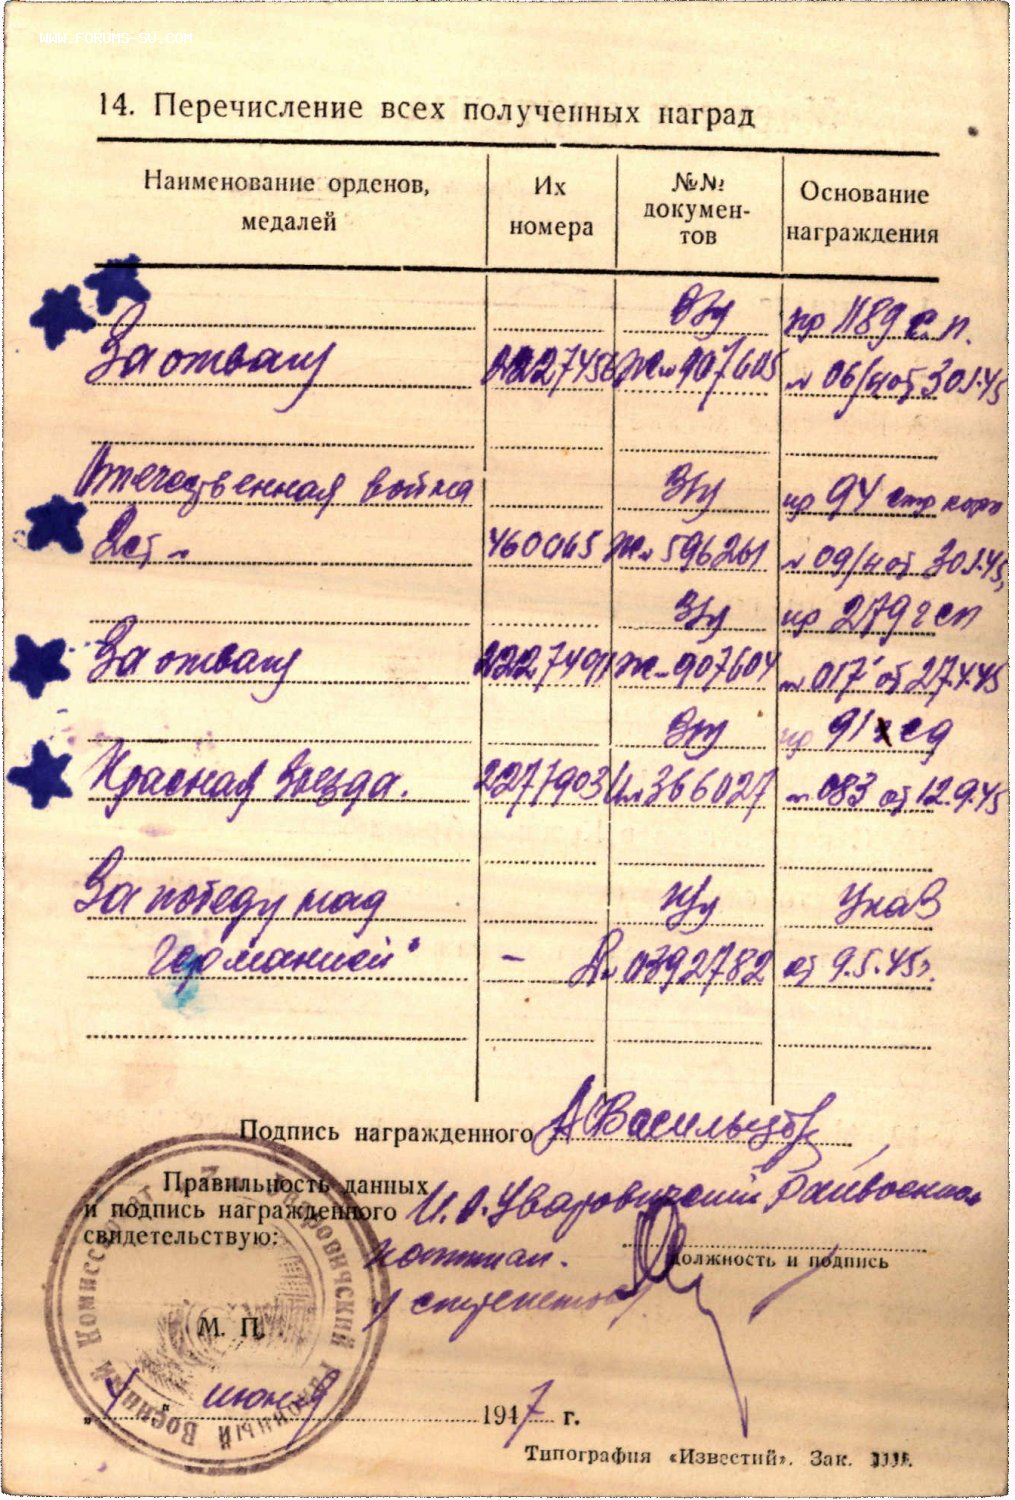 WWW.FORUMS-SU.COM
14. Перечисление всех полученных наград
Наименование орденов, медалей
Их номера
№№ докумен-тов
Основание награждения
пр 1189 с.п.
За отвагу 2227456 Ж № 907605 № 06/н от 30.1.45
Отечественная война пр 94 стр корп
2 ст. 460065 Ж № 596261 № 09/н от 30.1.45
пр 279 гсп
За отвагу 2227491 Ж № 907604 № 017 от 27.4.45
пр 91 сд
Красная Звезда. 2277903 № 366027 № 083 от 12.9.45
За победу над Указ
Германией" - А № 0392782 от 9.5.45г.
Подпись награжденного АВасильцов
Правильность данных
и подпись награжденного
свидетельствую:
И.О. Уваровический Райвоенком
капитан.
должность и подпись
М. П.
Уваровичский Районный Военный Комиссариат
„ 4 " июня 1947 г.
Типография «Известий». Зак.